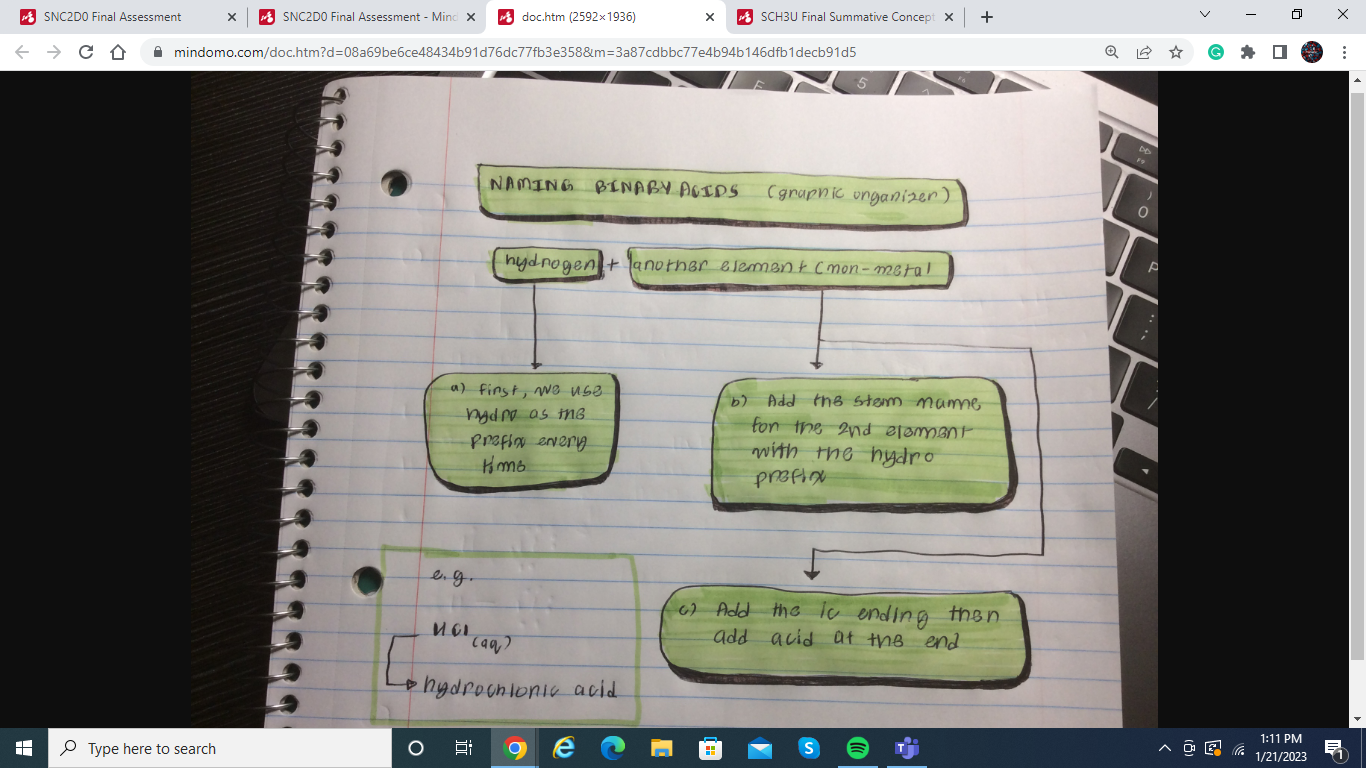 SNC2D0 Final Assessment
SNC2D0 Final Assessment - Mind
doc.htm (2592×1936)
SCH3U Final Summative Concept
mindomo.com/doc.htm?d=08a69be6ce48434b91d76dc77fb3e358&m=3a87cdbbc77e4b94b146dfb1decb91d5
NAMING BINARY ACIDS (graphic organizer)
hydrogen + another element (non-metal
a) First, we use
hydro as the
prefix every
time
b) Add the stem name
for the 2nd element
with the hydro
prefix
c) Add the ic ending then
add acid at the end
e.g.
HCl
(aq)
hydrochloric acid
Type here to search
1:11 PM
1/21/2023